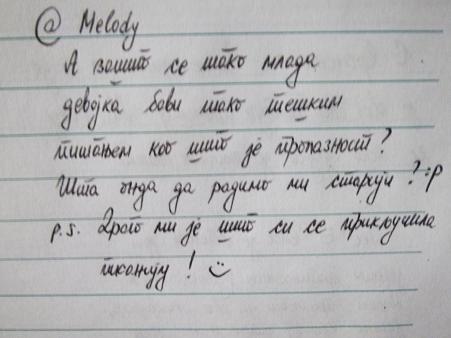 @ Melody
А зашто се тако млада
девојка бави тако тешким
питањем као што је пролазност?
Шта онда да радимо ми старији? :p
p.s. Драго ми је што си се прикључила
ткању! :)